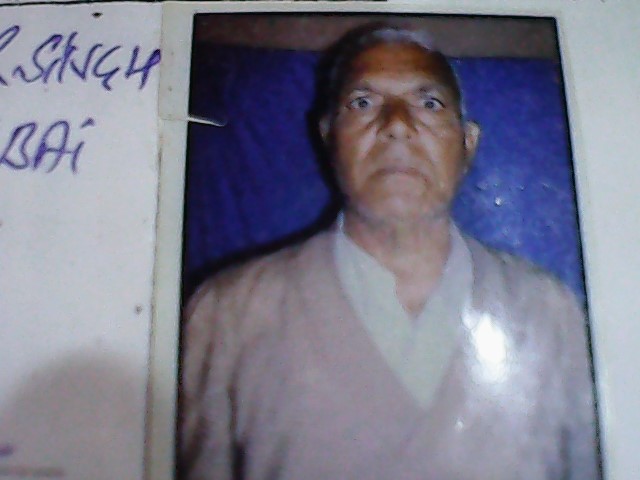 R.SINGH
BAI